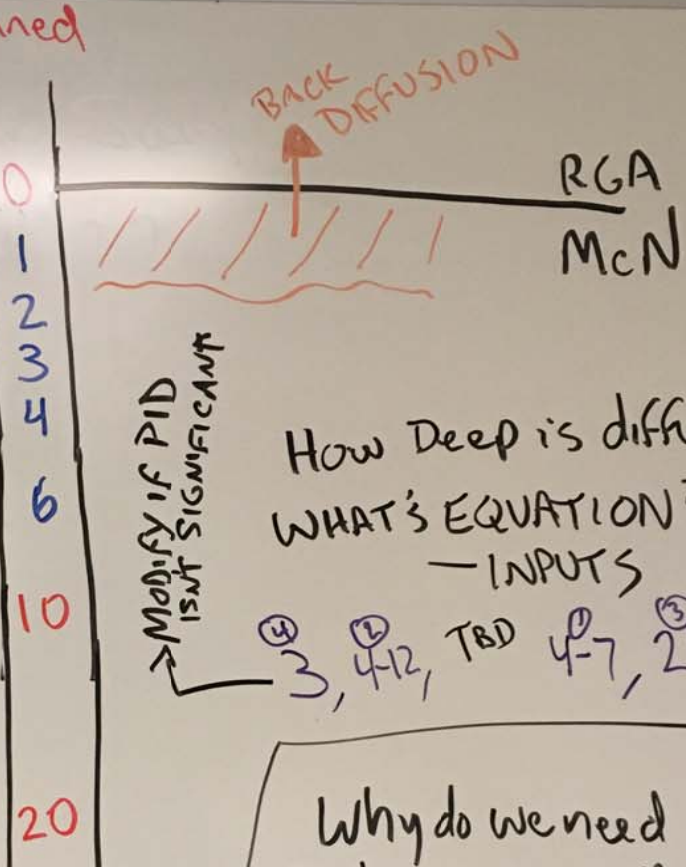 ned
BACK
DIFFUSION
0
RGA
1
McN
2
3
4
6
10
20
MODIFY IF PID
ISNT SIGNIFICANT
How Deep is diffu
WHAT'S EQUATION?
— INPUTS
4 2 1 3
3, 4-12, TBD 4-7, 2
Why do we need